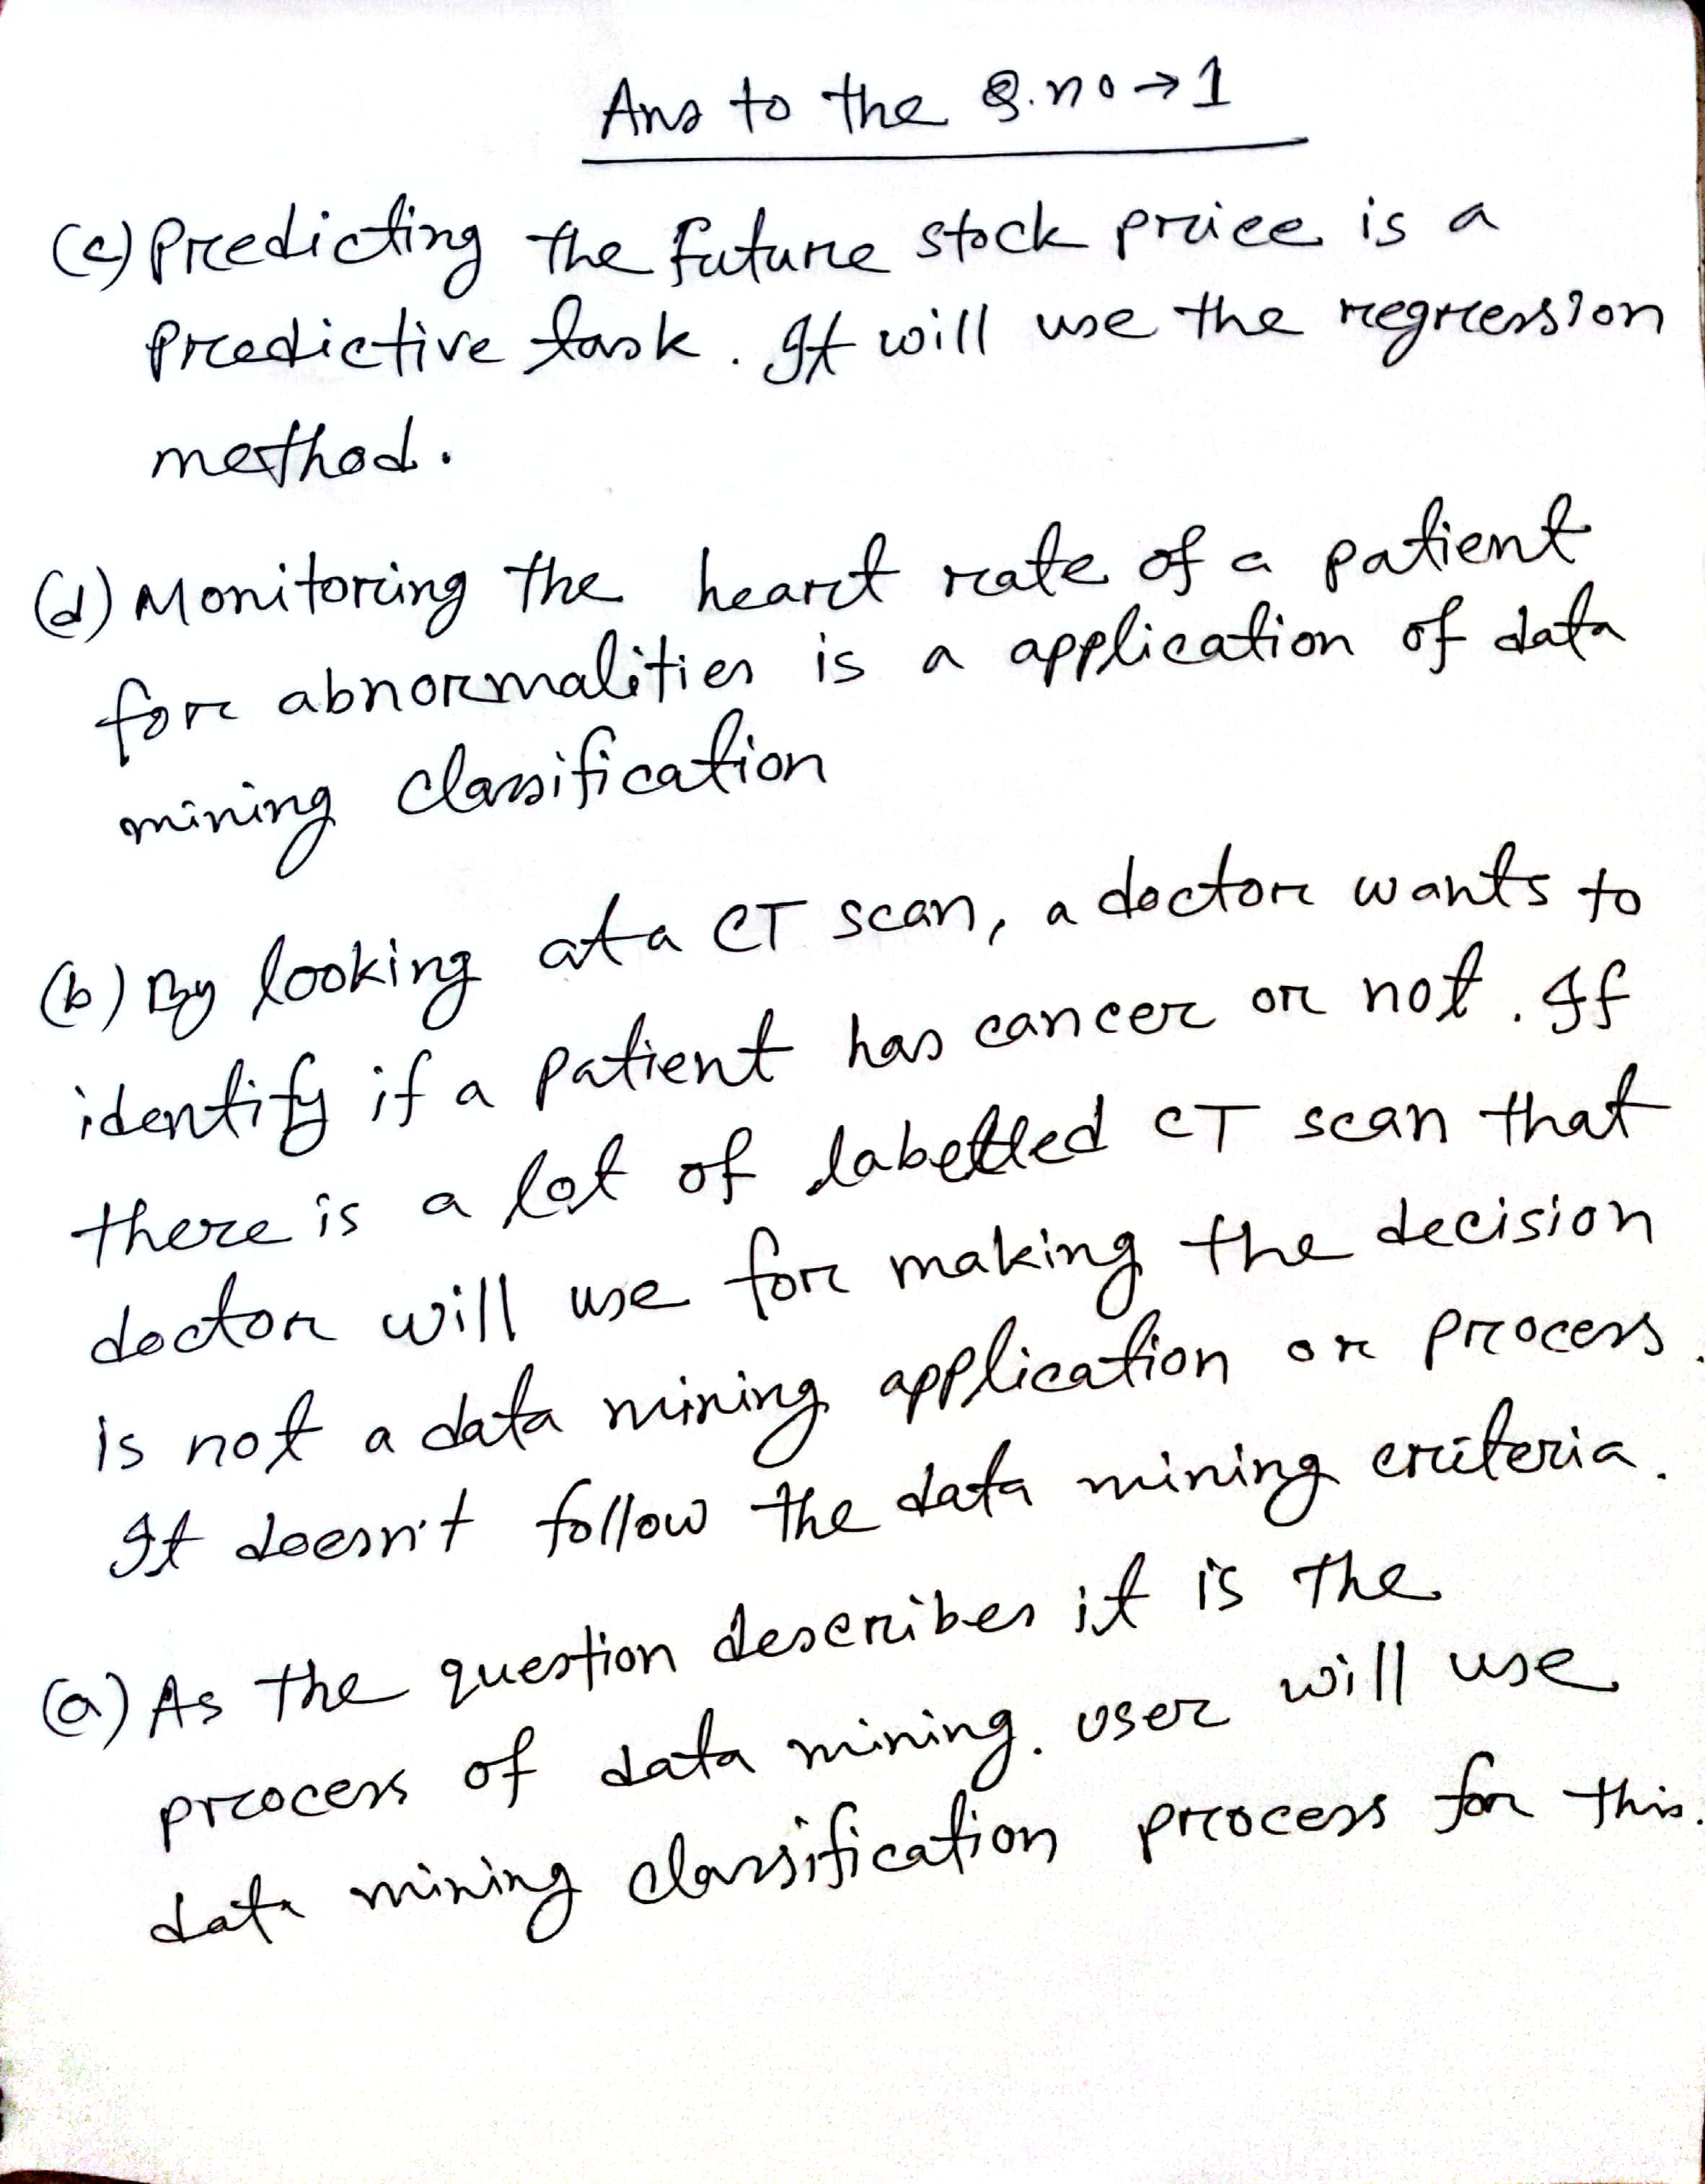 Ans to the Q.no→1
(c) Predicting the future stock price is a
predictive task. It will use the regression
method.
(d) Monitoring the heart rate of a patient
for abnormalities is a application of data
mining classification
(b) By looking at a CT scan, a doctor wants to
identify if a patient has cancer or not. If
there is a lot of labelled CT scan that
doctor will use for making the decision
is not a data mining application or process.
It doesn't follow the data mining criteria.
(a) As the question describes it is the
process of data mining. user will use
data mining classification process for this.